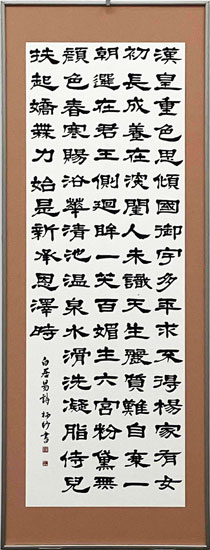 漢皇重色思傾國御宇多年求不得楊家有女
初長成養在深閨人未識天生麗質難自棄一
朝選在君王側廻眸一笑百媚生六宮粉黛無
顔色春寒賜浴華清池温泉水滑洗凝脂侍兒
扶起嬌無力始是新承恩澤時
白居易詩 書